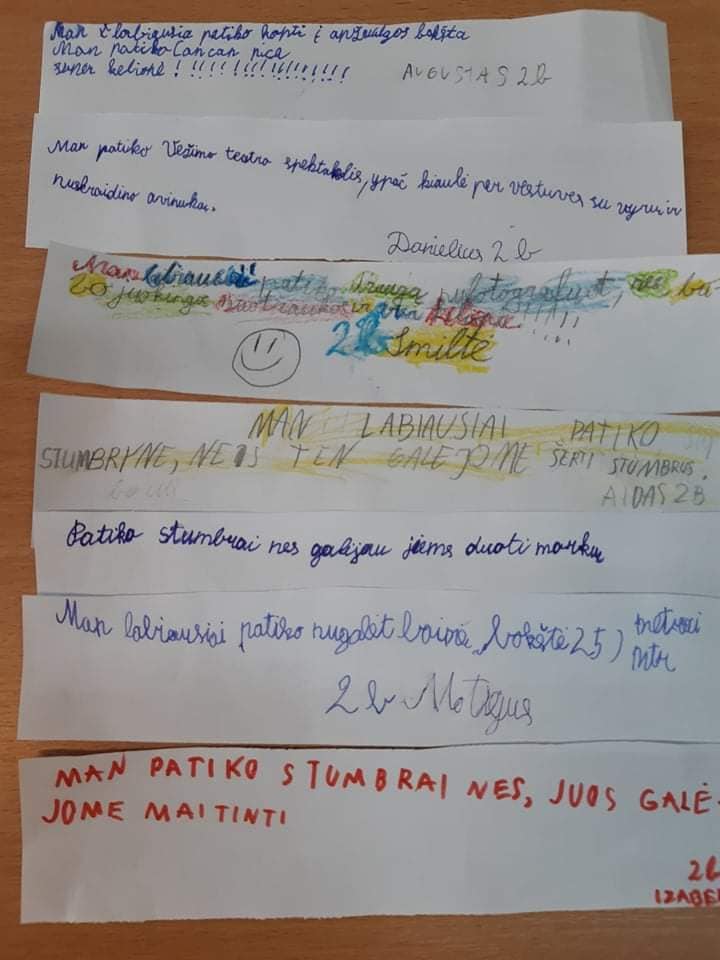 Man labiausia patiko kopti į apžvalgos bokšta
Man patiko Cancan pica
super kelionė ! !!!!!!!!!!!!!!!!!!
AUGUSTAS 2b
Man patiko Vežimo teatro spektaklis, ypač kiaulė per vestuves su vyru ir
nuskraidino avinukai.
Danielius 2b
Man labiausiai patiko drauga nufotografuot, nes bu-
vo juokingos nuotraukos ir visa kelionė!!!!!
2b Smiltė
MAN LABIAUSIAI PATIKO
STUMBRYNE, NES TEN GALEJOME ŠERTI STUMBRUS.
AIDAS 2B
Patiko stumbrai nes galėjau jiems duoti morkų
Man labiausiai patiko nugalėt baimę, bokštė 25) metrai
mtr
2b Motiejus
MAN PATIKO STUMBRAI NES, JUOS GALĖ-
JOME MAITINTI
2b